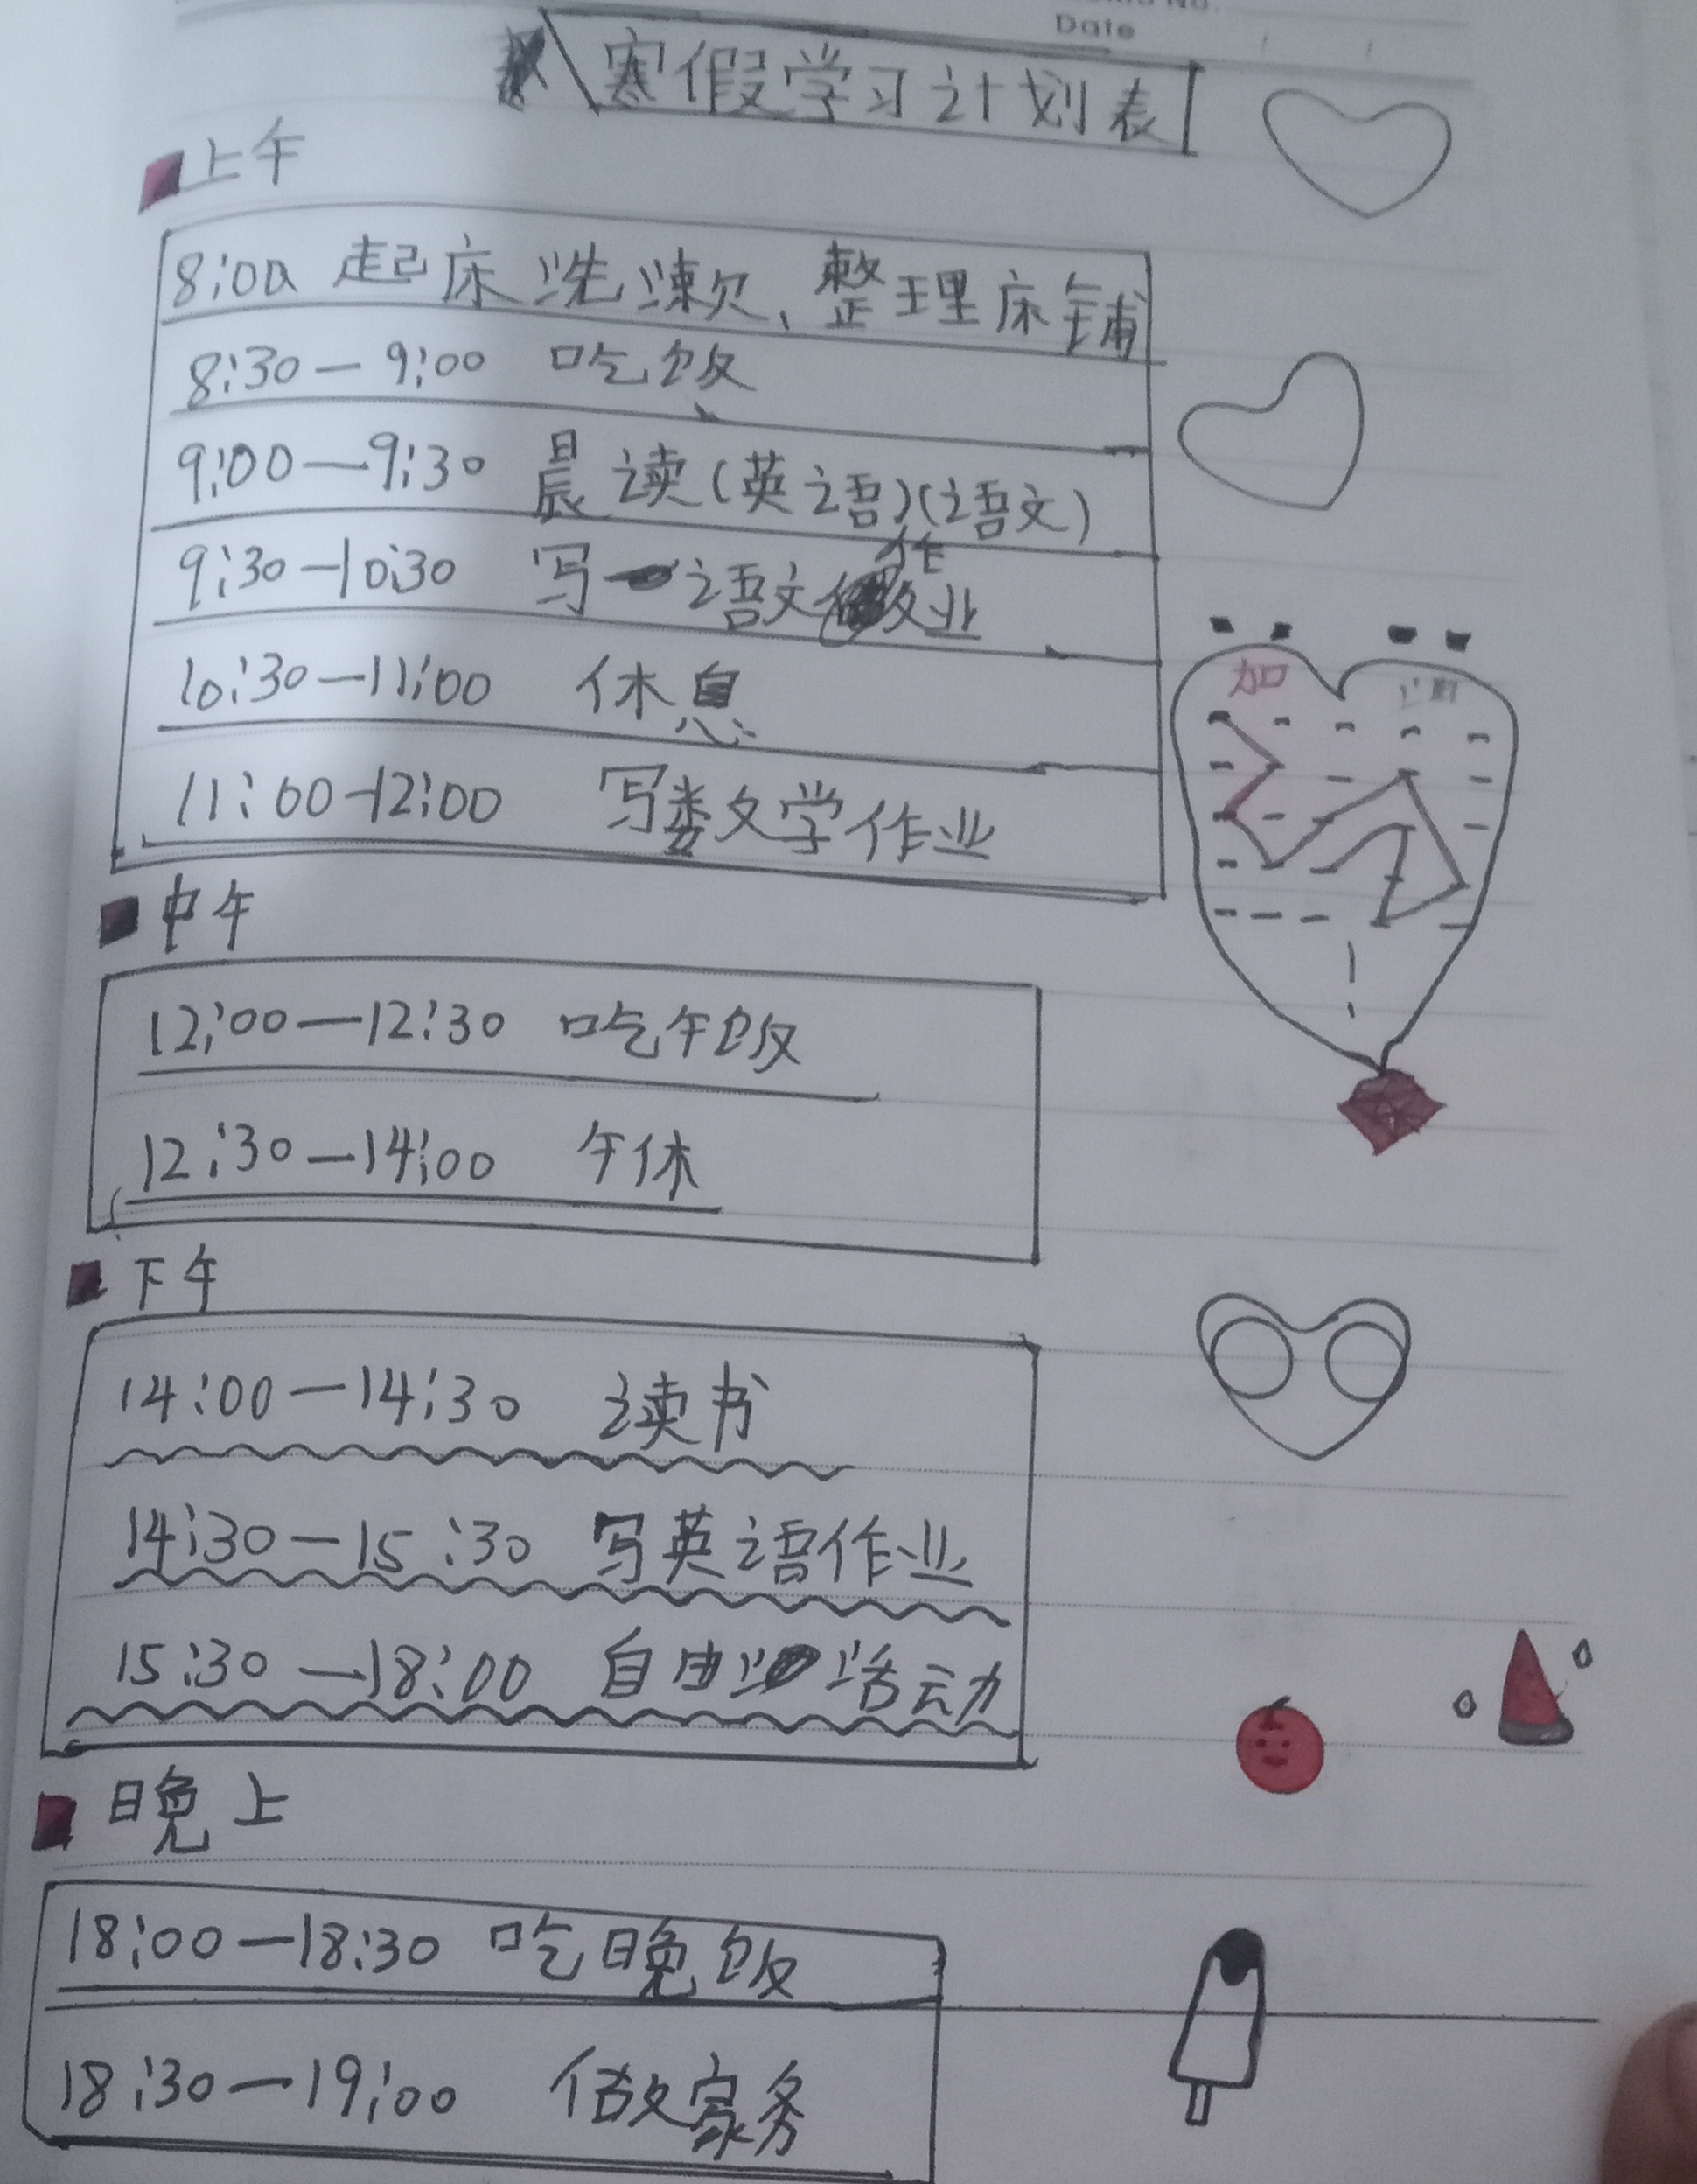 Date
寒假学习计划表
上午
8:00 起床洗漱、整理床铺
8:30—9:00 吃饭
9:00—9:30 晨读(英语)(语文)
9:30—10:30 写语文作业
10:30—11:00 休息
11:00-12:00 写数学作业
加
中午
12:00—12:30 吃午饭
12:30—14:00 午休
下午
14:00—14:30 读书
14:30—15:30 写英语作业
15:30—18:00 自由活动
晚上
18:00—18:30 吃晚饭
18:30—19:00 做家务